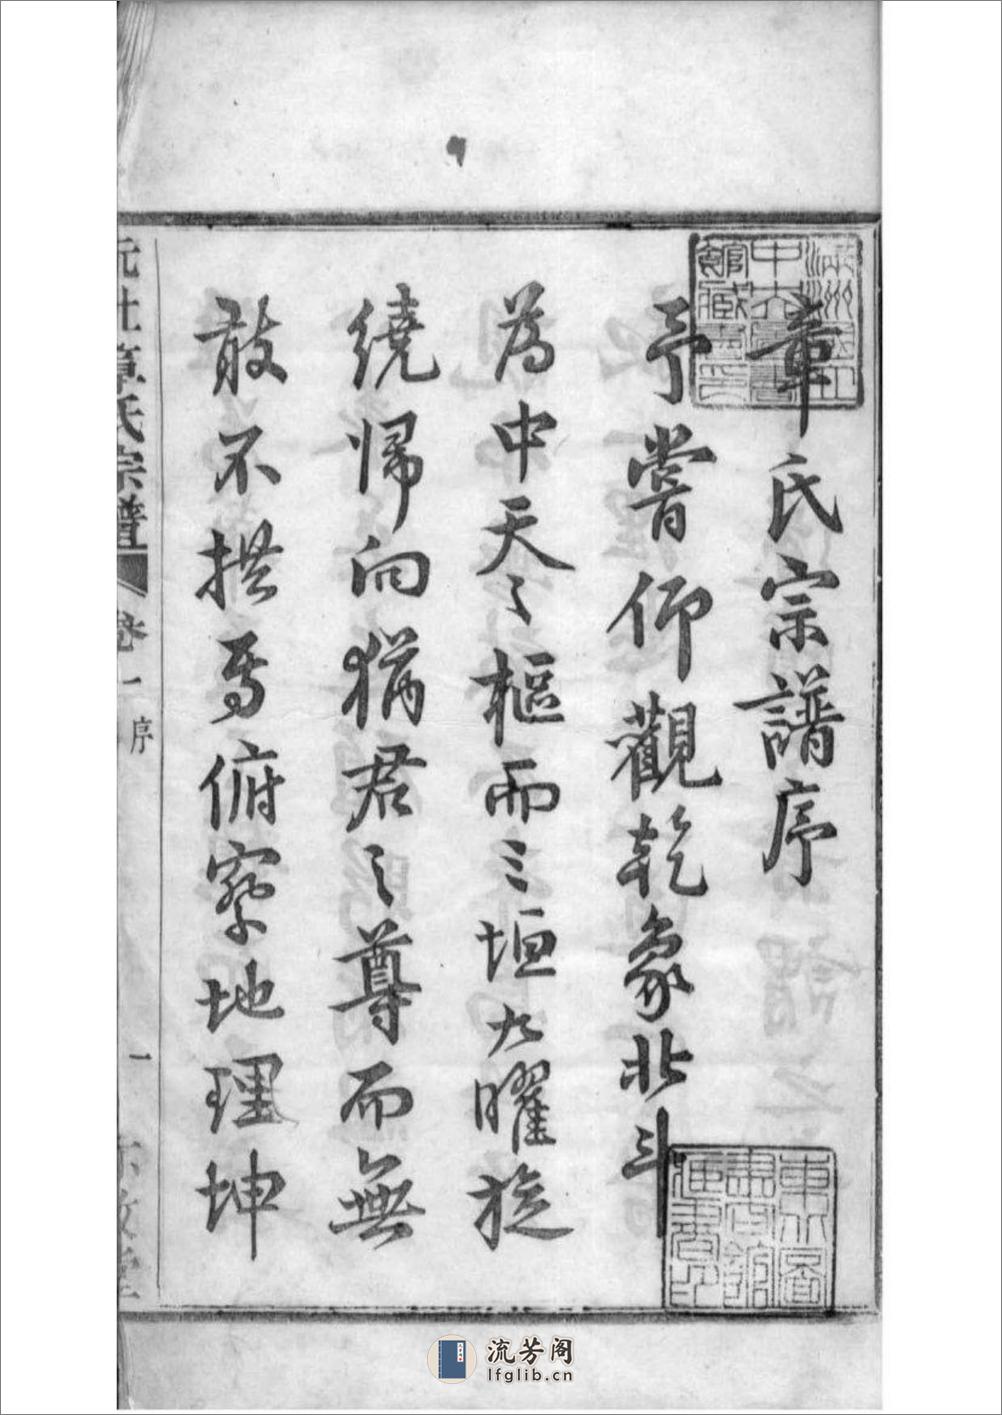 章氏宗譜序
予嘗仰觀乾象北斗
為中天之樞而三垣九曜旋
繞歸向猶君之尊而無
敢不拱焉俯察地理坤
阮社章氏宗譜 卷一 序 一
流芳阁
lfglib.cn